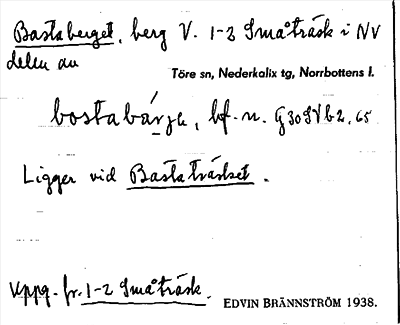 Bastaberget, berg V. 1-2 Småträsk i NV
delen av
Töre sn, Nederkalix tg, Norrbottens l.
bostabárjə, bf. n. G30SVb2, 65
Ligger vid Bastaträsket.
Uppg. fr. 1-2 Småträsk.
EDVIN BRÄNNSTRÖM 1938.